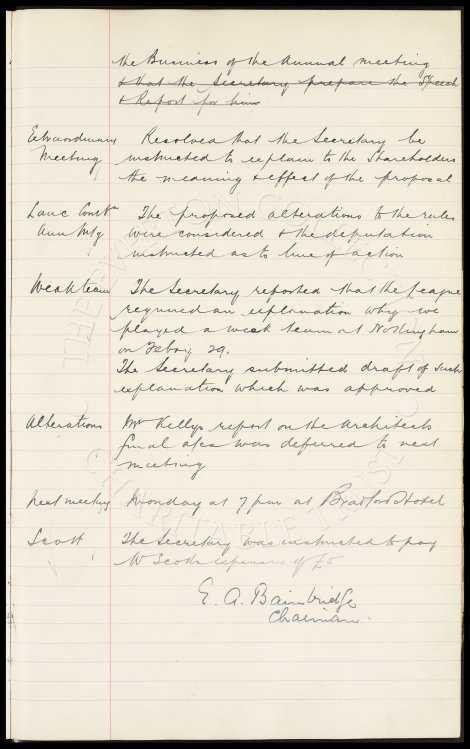 the Business of the Annual meeting
& that the Secretary prepare the Speech
& Report for him
Extraordinary Meeting Resolved that the Secretary be
instructed to explain to the Shareholders
the meaning & effect of the proposal
Lanc Ann Mtg The proposed alterations to the rules
were considered & the deputation
instructed as to line of action
Weak team The Secretary reported that the League
required an explanation why we
played a weak team at Nottingham
on Feby 29.
The Secretary submitted draft of such
explanation which was approved
Alterations Mr Kellys report on the Architects
final a/cs was deferred to next
meeting
Next meeting Monday at 7 pm at Bradford Hotel
Scott The Secretary was instructed to pay
W Scotts expenses of £5
E. A. Bainbridge
Chairman.
THE EVERTON COLLECTION
CHARITABLE TRUST